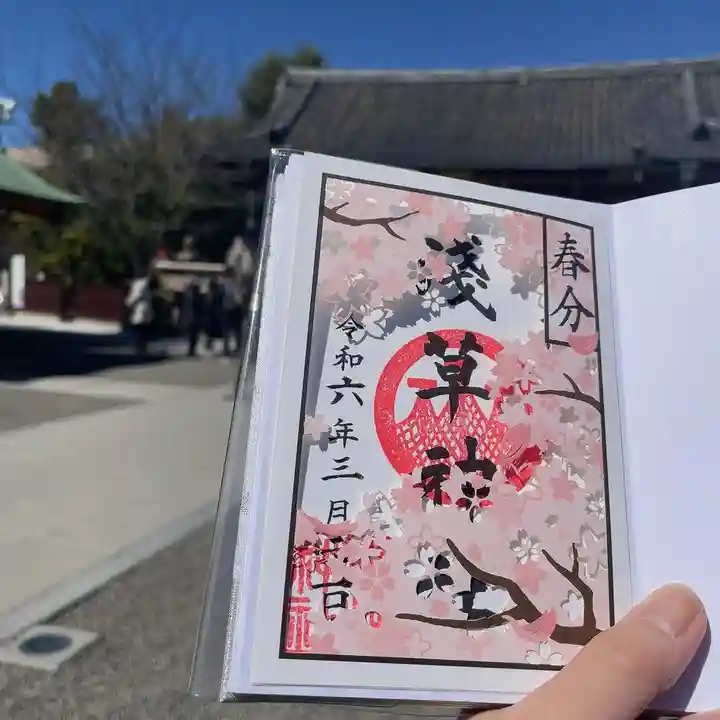 春分
淺草神社
令和六年三月二十日